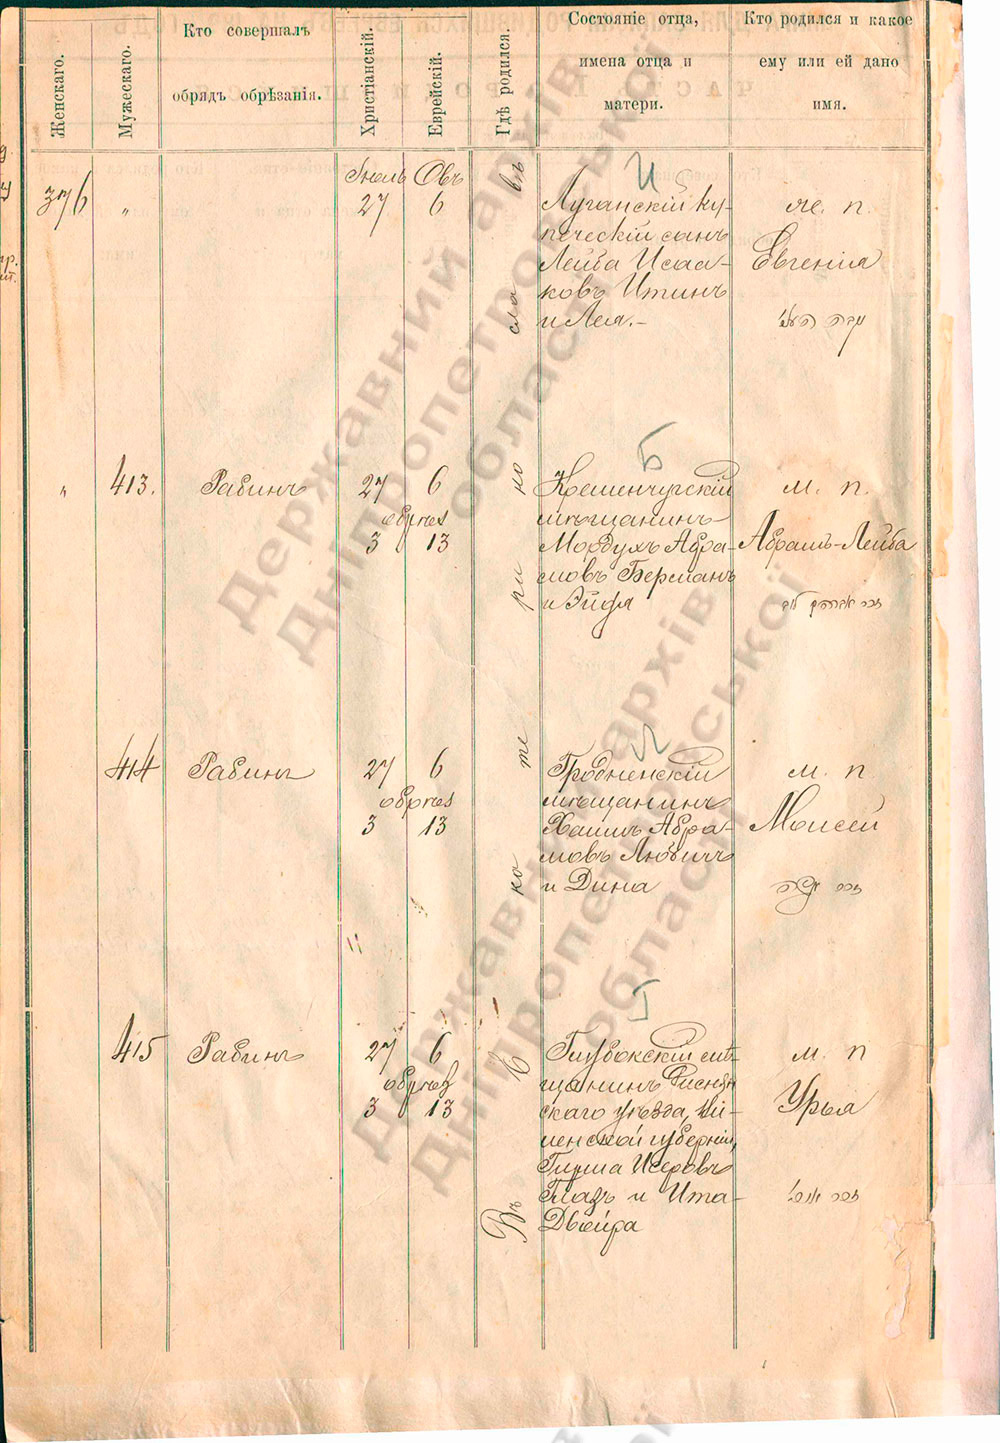 Женскаго.
Мужескаго.
Кто совершалъ
обрядъ обрѣзанія.
Христіанскій.
Еврейскій.
Гдѣ родился.
Состояніе отца,
имена отца и
матери.
Кто родился и какое
ему или ей дано
имя.
376
"
Іюль
27
Овъ
6
Въ Екатеринославѣ
И
Луганскій ку-
печескій сынъ
Лейба Исаа-
ковъ Итинъ
и Лея.-
ж. п.
Евгенія
"
413.
Раввинъ
27
6
обрѣз
3
13
Б
Кременчугскій
мѣщанинъ
Мордухъ Абра-
мовъ Берманъ
и Эйдя
м. п.
Абрамъ-Лейба
זכר אברהם ליב
414
Раввинъ
27
6
обрѣз
3
13
Л
Гродненскій
мѣщанинъ
Хаимъ Абра-
мовъ Любичъ
и Дина
м. п
Моисей
זכר משה
415
Раввинъ
27
6
обрѣз
3
13
Г
Глубокскій мѣ-
щанинъ Дисненс
скаго уѣзда, Ви-
ленской губерніи,
Гирша Исеровъ
Глазъ и Ита-
Двейра
м. п
Урья
זכר אורי
Державний архів
Дніпропетровської
області
Державний архів
Дніпропетровської
області